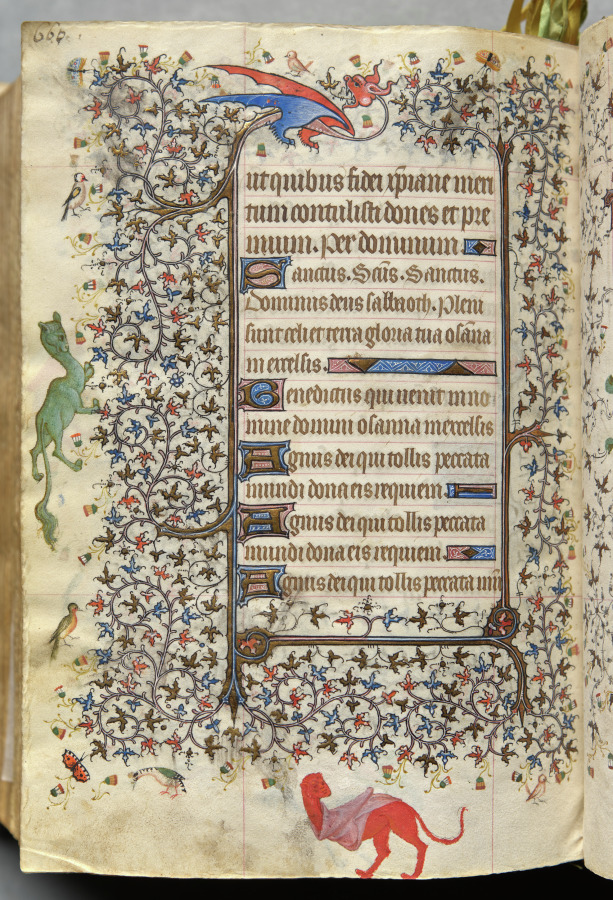 665.
ut quibus fidei xp̄iane meri
tum contulisti dones et pre
mium. Per dominum
Sanctus. Scūs. Sanctus.
Dominus deus sabaoth. Pleni
sunt celi et terra gloria tua osāna
in excelsis.
Benedictus qui uenit in no
mine domini osanna in excelsis
Agnus dei qui tollis peccata
mundi dona eis requiem.
Agnus dei qui tollis peccata
mundi dona eis requiem.
Agnus dei qui tollis peccata mū